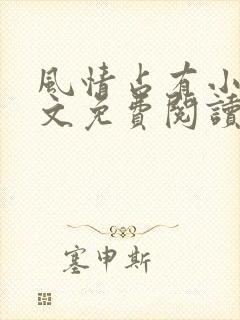 風情占有小
文免費閱讀
塞申斯